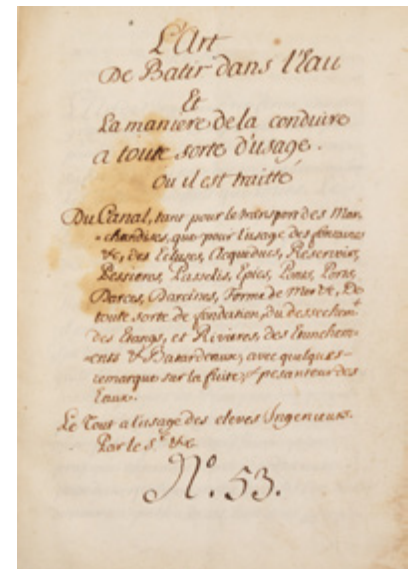 L'Art
De Batir dans l'Eau
Et
La maniere de la conduire
a toute sorte d'usage.
Ou il est traitté
Du Canal, tant pour le transport des Mar-
-chandises, que pour l'usage des fontaines
&c, des Ecluses, Acqueducs, Reservoirs,
Passelis, Epics, Ponts, Ports,
Darces, Darcines, Forme de Mer &c, De
toute sorte de fondation, du dessechem.t
des Etangs, et Rivieres, des
& Batardeaux, avec quelques-
remarque sur la fuite, & pesanteur des
Eaux.
Le Tout a l'usage des eleves Ingenieurs.
Par le S.r &c
N.o 53.